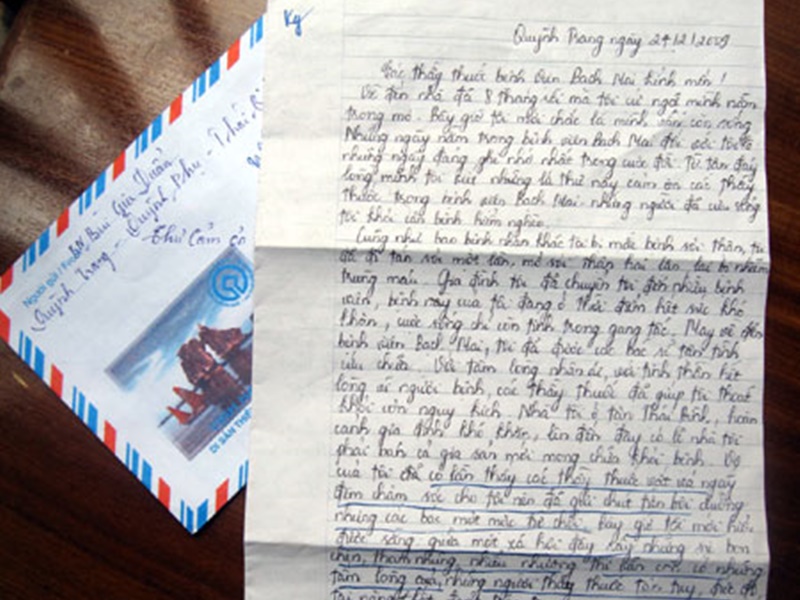 Ký
Quỳnh Trang ngày 24/12/2009
Các thầy thuốc bệnh viện Bạch Mai kính mến!
Về đến nhà đã 8 tháng rồi mà tôi cứ ngỡ mình nằm
trong mơ. Bây giờ tôi mới chắc là mình vẫn còn sống
Những ngày nằm trong bệnh viện Bạch Mai đối với tôi là
những ngày đáng ghi nhớ nhất trong cuộc đời. Từ tận đáy
lòng mình tôi viết những lá thư này cảm ơn các thầy
thuốc trong bệnh viện Bạch Mai những người đã cứu sống
tôi khỏi căn bệnh hiểm nghèo.
Cũng như bao bệnh nhân khác tôi bị mắc bệnh sỏi thận, tôi
đã đi tán sỏi một lần, mổ sỏi thận hai lần, lại bị nhiễm
trùng máu. Gia đình tôi đã chuyển tôi đến nhiều bệnh
viện, bệnh này của tôi đang ở thời điểm hết sức khó
khăn, cuộc sống chỉ còn tính trong gang tấc. May về đến
bệnh viện Bạch Mai, tôi đã được các bác sĩ tận tình
cứu chữa. Với tấm lòng nhân ái, với tinh thần hết
lòng vì người bệnh, các thầy thuốc đã giúp tôi thoát
khỏi cơn nguy kịch. Nhà tôi ở tận Thái Bình, hoàn
cảnh gia đình khó khăn, lên đến đây có lẽ nhà tôi
phải bán cả gia sản mới mong chữa khỏi bệnh. Vợ
của tôi đã có lần thấy các thầy thuốc vất vả ngày
đêm chăm sóc cho tôi nên đã gửi chút tiền bồi dưỡng
nhưng các bác một mực từ chối. Bây giờ tôi mới hiểu
được sống giữa một xã hội đầy rẫy những sự bon
chen, tham nhũng, nhiễu nhương thì vẫn còn có những
tấm lòng của, những người thầy thuốc tận tụy, đức độ
Người gửi / From: Bùi Gia Duẩn
Quỳnh Trang - Quỳnh Phụ - Thái
Thư Cảm ơn
DI SẢN THẾ